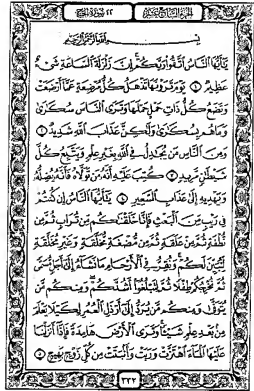 ٢٢ سورة الحج الجزء السابع عشر
بِسْمِ ٱللَّهِ ٱلرَّحْمَٰنِ ٱلرَّحِيمِ
يَٰٓأَيُّهَا ٱلنَّاسُ ٱتَّقُوا۟ رَبَّكُمْ إِنَّ زَلْزَلَةَ ٱلسَّاعَةِ شَىْءٌ
عَظِيمٌ ١ يَوْمَ تَرَوْنَهَا تَذْهَلُ كُلُّ مُرْضِعَةٍ عَمَّآ أَرْضَعَتْ
وَتَضَعُ كُلُّ ذَاتِ حَمْلٍ حَمْلَهَا وَتَرَى ٱلنَّاسَ سُكَٰرَىٰ
وَمَا هُم بِسُكَٰرَىٰ وَلَٰكِنَّ عَذَابَ ٱللَّهِ شَدِيدٌ ٢
وَمِنَ ٱلنَّاسِ مَن يُجَٰدِلُ فِى ٱللَّهِ بِغَيْرِ عِلْمٍ وَيَتَّبِعُ كُلَّ
شَيْطَٰنٍ مَّرِيدٍ ٣ كُتِبَ عَلَيْهِ أَنَّهُۥ مَن تَوَلَّاهُ فَأَنَّهُۥ يُضِلُّهُۥ
وَيَهْدِيهِ إِلَىٰ عَذَابِ ٱلسَّعِيرِ ٤ يَٰٓأَيُّهَا ٱلنَّاسُ إِن كُنتُمْ
فِى رَيْبٍ مِّنَ ٱلْبَعْثِ فَإِنَّا خَلَقْنَٰكُم مِّن تُرَابٍ ثُمَّ مِن
نُّطْفَةٍ ثُمَّ مِنْ عَلَقَةٍ ثُمَّ مِن مُّضْغَةٍ مُّخَلَّقَةٍ وَغَيْرِ مُخَلَّقَةٍ
لِّنُبَيِّنَ لَكُمْ وَنُقِرُّ فِى ٱلْأَرْحَامِ مَا نَشَآءُ إِلَىٰٓ أَجَلٍ مُّسَمًّى
ثُمَّ نُخْرِجُكُمْ طِفْلًا ثُمَّ لِتَبْلُغُوٓا۟ أَشُدَّكُمْ وَمِنكُم مَّن
يُتَوَفَّىٰ وَمِنكُم مَّن يُرَدُّ إِلَىٰٓ أَرْذَلِ ٱلْعُمُرِ لِكَيْلَا يَعْلَمَ
مِنۢ بَعْدِ عِلْمٍ شَيْـًٔا وَتَرَى ٱلْأَرْضَ هَامِدَةً فَإِذَآ أَنزَلْنَا
عَلَيْهَا ٱلْمَآءَ ٱهْتَزَّتْ وَرَبَتْ وَأَنۢبَتَتْ مِن كُلِّ زَوْجٍۭ بَهِيجٍ ٥
٣٣٢